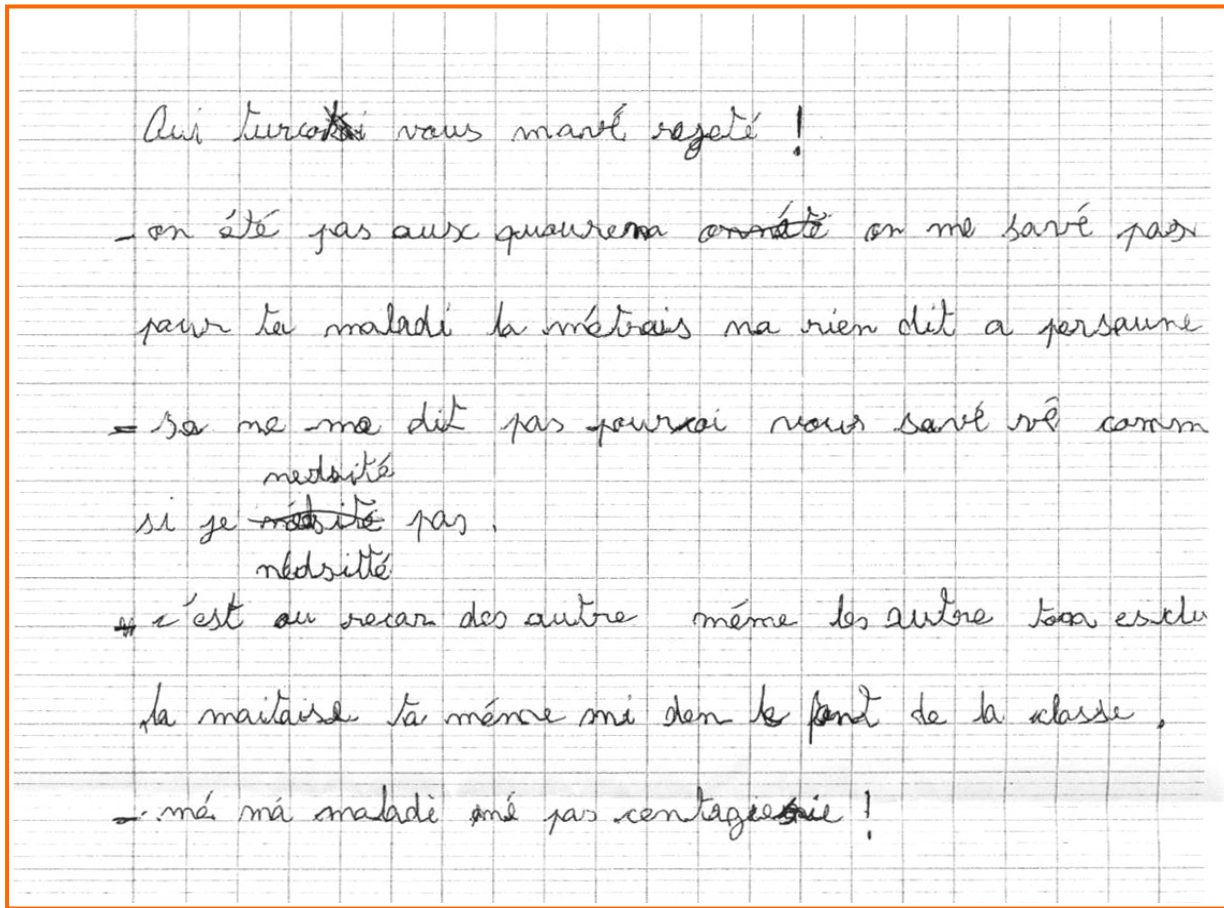 Oui turcoi vous mavé rejeté !
- on été pas aux quourena on me savé pas
pour ta maladi la métrais na rien dit a persaune
- sa ne me dit pas pourcoi vous savé vé comm
nedsité
si je pas.
nédsitté
- c'est au recar des autre même les autre ton esclu
la maitaise ta même mi den le font de la classe.
- mé ma maladi né pas contagieuie !